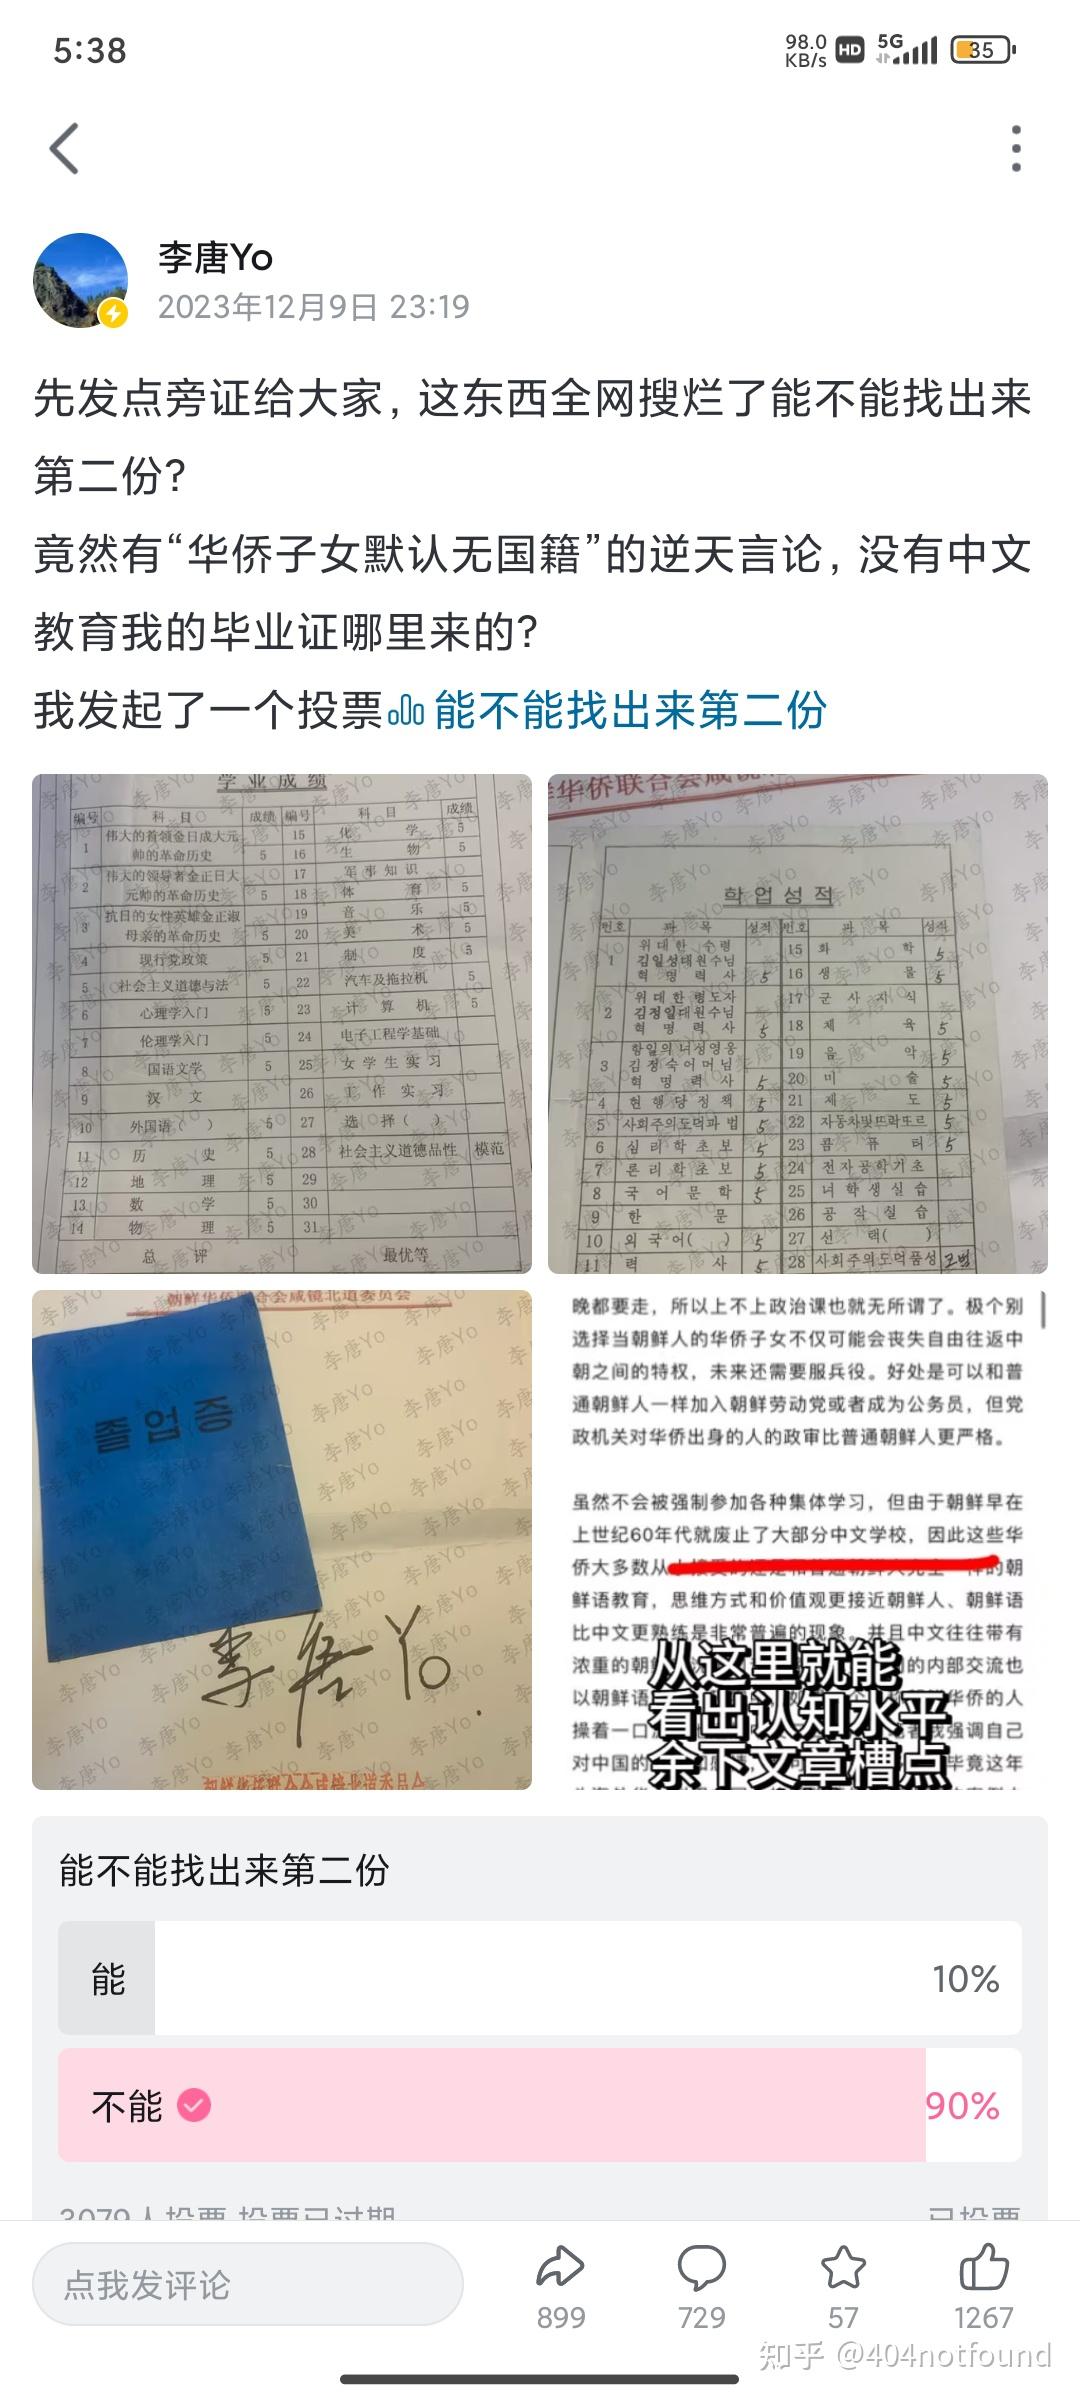 5:38
98.0
KB/s
HD
5G
35
李唐Yo
2023年12月9日 23:19
先发点旁证给大家，这东西全网搜烂了能不能找出来
第二份？
竟然有“华侨子女默认无国籍”的逆天言论，没有中文
教育我的毕业证哪里来的？
我发起了一个投票 能不能找出来第二份
学业成绩
编号 科目 成绩 编号 科目 成绩
1 伟大的首领金日成大元帅的革命历史 5 15 化学 5
16 生物 5
2 伟大的领导者金正日大元帅的革命历史 5 17 军事知识
18 体育 5
3 抗日的女性英雄金正淑母亲的革命历史 5 19 音乐 5
20 美术 5
4 现行党政策 5 21 制度 5
5 社会主义道德与法 5 22 汽车及拖拉机
6 心理学入门 5 23 计算机 5
7 伦理学入门 5 24 电子工程学基础
8 国语文学 5 25 女学生实习
9 汉文 26 工作实习
10 外国语( ) 5 27 选择( )
11 历史 5 28 社会主义道德品性 模范
12 地理 5 29
13 数学 5 30
14 物理 5 31
总评 最优等
华侨联合会咸镜
학업성적
번호 과목 성적 번호 과목 성적
1 위대한 수령 김일성대원수님 혁명력사 5 15 화학 5
16 생물 5
2 위대한 령도자 김정일대원수님 혁명력사 5 17 군사지식
18 체육 5
3 항일의 녀성영웅 김정숙어머님 혁명력사 5 19 음악 5
20 미술 5
4 현행당정책 5 21 제도 5
5 사회주의도덕과법 5 22 자동차및뜨락또르 5
6 심리학초보 5 23 콤퓨터 5
7 론리학초보 5 24 전자공학기초
8 국어문학 5 25 녀학생실습
9 한문 26 공작실습
10 외국어( ) 5 27 선택( )
11 력사 5 28 사회주의도덕품성 모범
朝鲜华侨联合会咸镜北道委员会
졸업증
李唐Yo
朝鲜华侨联合会咸镜北道委员会
晚都要走，所以上不上政治课也就无所谓了。极个别
选择当朝鲜人的华侨子女不仅可能会丧失自由往返中
朝之间的特权，未来还需要服兵役。好处是可以和普
通朝鲜人一样加入朝鲜劳动党或者成为公务员，但党
政机关对华侨出身的人的政审比普通朝鲜人更严格。
虽然不会被强制参加各种集体学习，但由于朝鲜早在
上世纪60年代就废止了大部分中文学校，因此这些华
侨大多数从小接受的还是和普通朝鲜人完全一样的朝
鲜语教育，思维方式和价值观更接近朝鲜人、朝鲜语
比中文更熟练是非常普遍的现象。并且中文往往带有
浓重的朝 的内部交流也
以朝鲜语 华侨的人
操着一口 我强调自己
对中国的 毕竟这年
从这里就能
看出认知水平
余下文章槽点
能不能找出来第二份
能 10%
不能 90%
3079人投票 投票已过期 已投票
点我发评论
899
729
57
1267
知乎 @404notfound